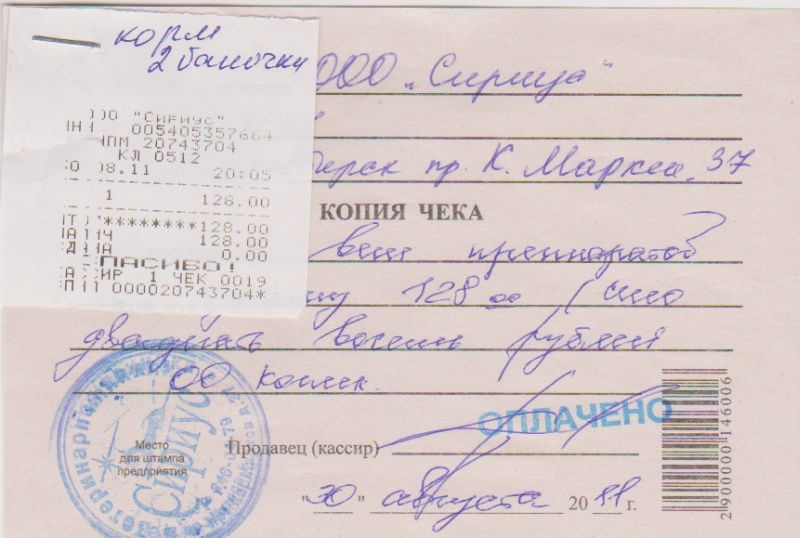 корм
2 баночки
ООО "СИРИУС"
005405357664
ЧПМ 20743704
КЛ 0512
08.11 20:05
1 128.00
*********128.00
128.00
0.00
СПАСИБО!
1 ЧЕК 0019
000020743704*
ООО „Сириус“
пр. К. Маркса, 37
КОПИЯ ЧЕКА
вет препаратов
128 00 (сто
двадцать восемь рублей
00 копеек.
ОПЛАЧЕНО
Сириус
Место
для штампа
предприятия
Продавец (кассир)
"30" августа 2011 г.
2 900000 146006